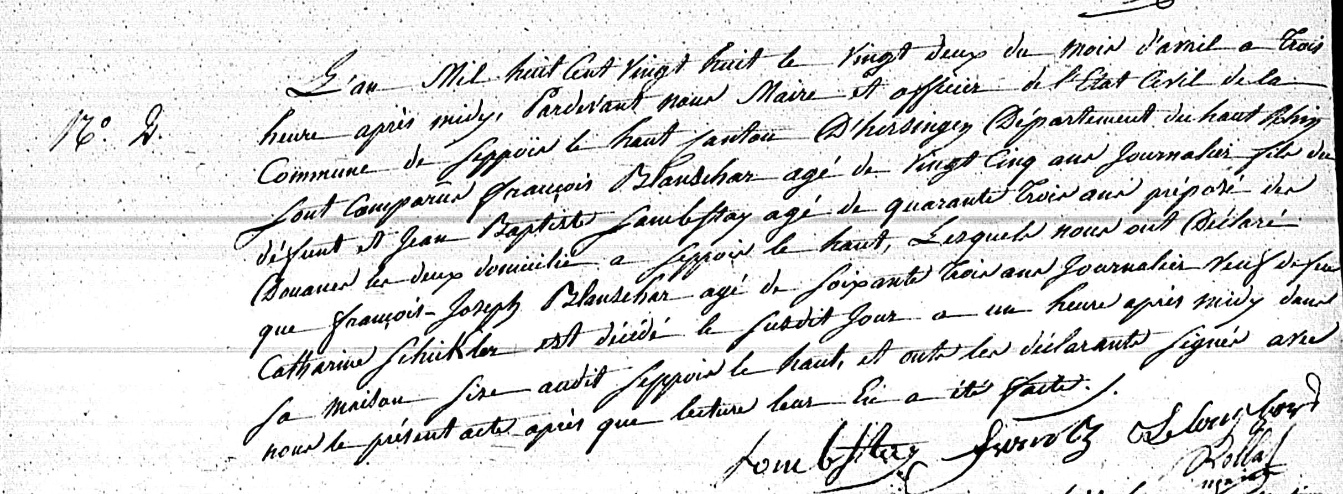 L'an Mil huit Cent Vingt huit le Vingt deux du mois d'avril a Trois
heure après midy, Pardevant nous Maire et officier de l'Etat Civil de la
N.º 2.
Commune de Seppois le haut Canton D'hersingen Département du haut Rhin
sont Comparûs françois Blanschar agé de Vingt Cinq ans Journalier fils du
défunt et Jean Baptiste Lambstay agé de quarante Trois ans préposé des
Douanes les deux domicilié a Seppois le haut, Lesquels nous ont Déclaré
que françois-Joseph Blanschar agé de Soixante Trois ans Journalier Veuf de feu
Catharine Schickler est décédé le susdit Jour a un heure après midy dans
sa maison size audit Seppois le haut, et onts les déclarants signés avec
nous le présent acte après que lecture leur En a été faite.